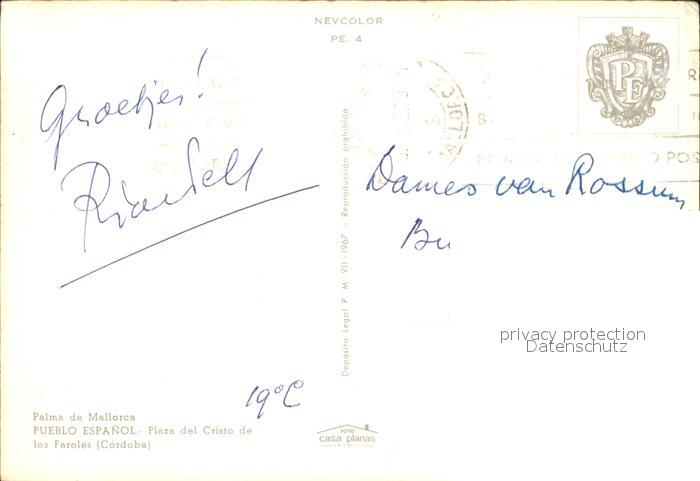 NEVCOLOR
PE. 4
PE
Groetjes!
Dames van Rossum
Bu
Depósito Legal P. M. 911-1967 :: Reproducción prohibida
privacy protection
Datenschutz
19°C
Palma de Mallorca
PUEBLO ESPAÑOL.- Plaza del Cristo de
los Faroles (Córdoba)
FOTO
casa planas